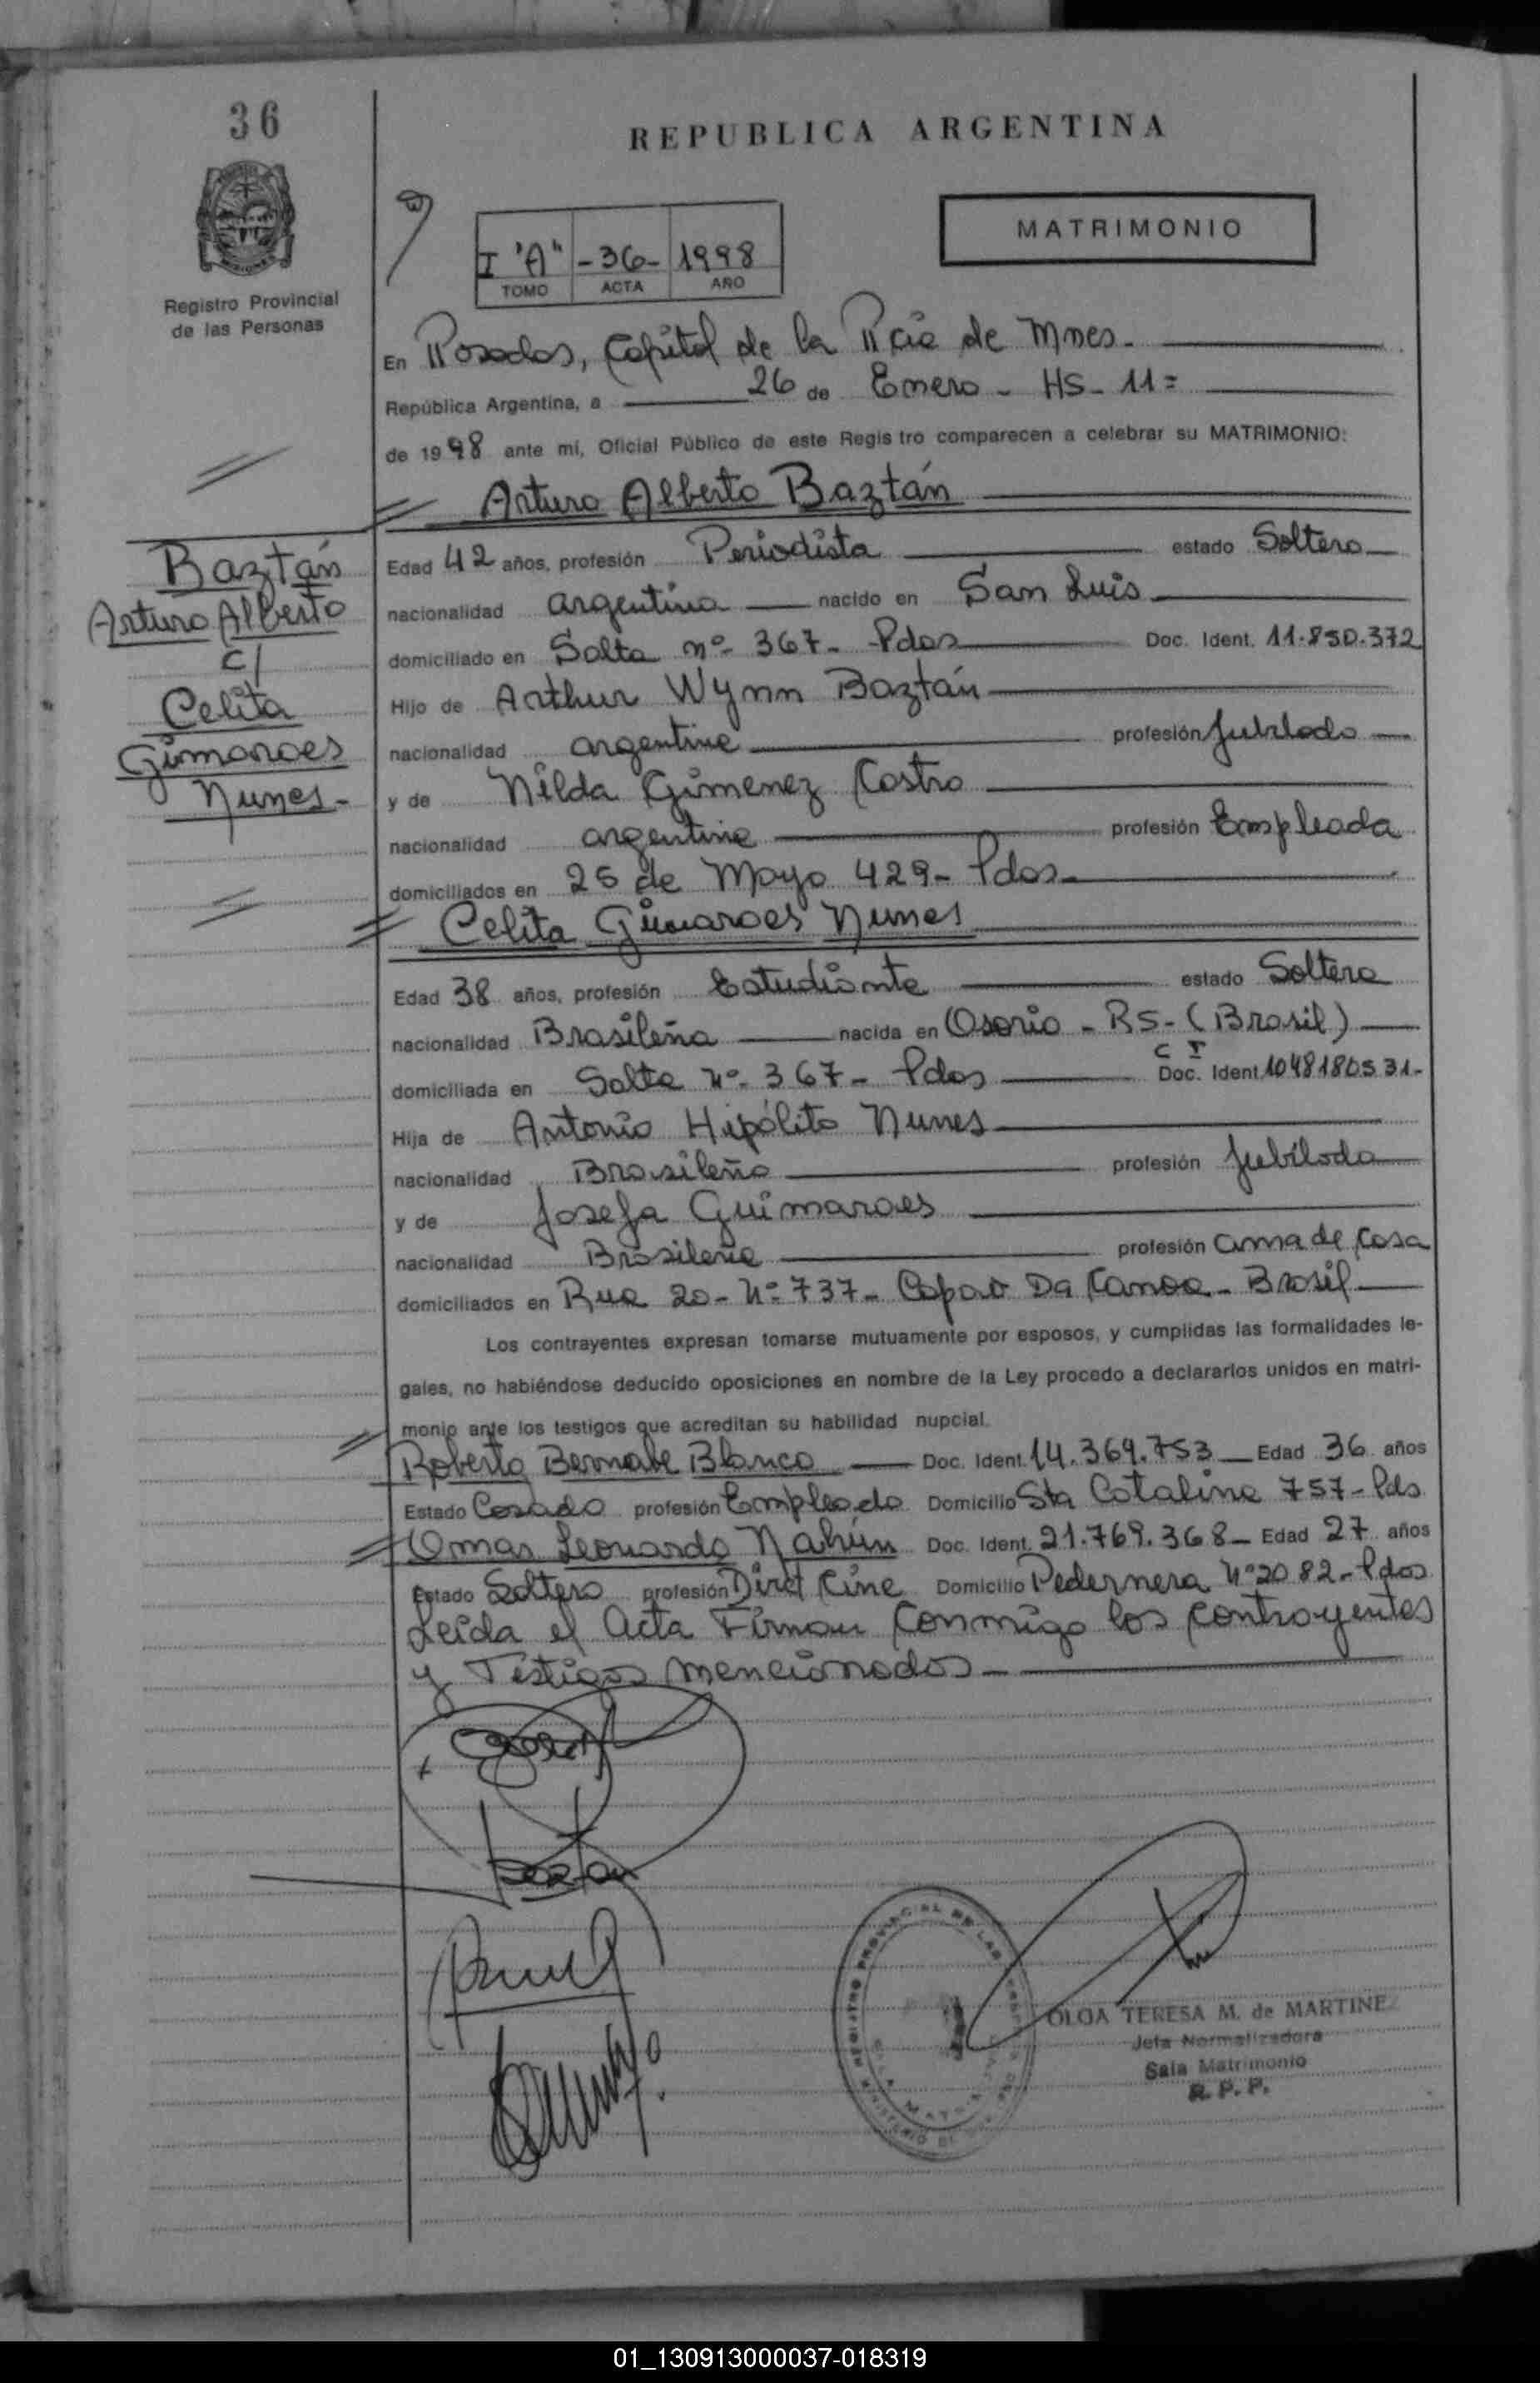 36
REPUBLICA ARGENTINA
MATRIMONIO
I "A" -36- 1998
TOMO ACTA AÑO
Registro Provincial
de las Personas
En Posadas, Capital de la Pcia de Mnes.
República Argentina, a 26 de Enero - HS - 11=
de 1998 ante mi, Oficial Público de este Regis tro comparecen a celebrar su MATRIMONIO:
Arturo Alberto Baztán
Baztán
Arturo Alberto
c/
Celita
Gimaraes
Nunes-
Edad 42 años, profesión Periodista estado Soltero
nacionalidad argentina nacido en San Luis
domiciliado en Salta nº 367- Pdas Doc. Ident. 11.850.372
Hijo de Arthur Wynn Baztán
nacionalidad argentina profesión Jubilado
y de Nilda Gimenez Castro
nacionalidad argentina profesión Empleada
domiciliados en 25 de Mayo 429- Pdas-
Celita Gimaraes Nunes
Edad 38 años, profesión Estudiante estado Soltera
nacionalidad Brasileña nacida en Osorio - RS - (Brasil)
C I
domiciliada en Salta Nº 367- Pdas Doc. Ident. 1048180531-
Hija de Antonio Hipólito Nunes
nacionalidad Brasileña profesión Jubilado
y de Josefa Guimaraes
nacionalidad Brasileña profesión ama de Casa
domiciliados en Rua 20 - Nº 737- Capao Da Canoa - Brasil
Los contrayentes expresan tomarse mutuamente por esposos, y cumplidas las formalidades le-
gales, no habiéndose deducido oposiciones en nombre de la Ley procedo a declararlos unidos en matri-
monio ante los testigos que acreditan su habilidad nupcial.
Roberto Bernabe Blanco Doc. Ident. 14.369.753 Edad 36 años
Estado Casado profesión Empleado Domicilio Sta Catalina 757- Pds
Omar Leonardo Nahún Doc. Ident. 21.769.368- Edad 27 años
Estado Soltero profesión Diret Cine Domicilio Pedernera Nº 2082- Pdas
Leída el Acta Firman Conmigo los Contrayentes
y Testigos mencionados-
Baztan
OLGA TERESA M. de MARTINEZ
Jefa Normalizadora
Sala Matrimonio
R. P. P.
01_130913000037-018319